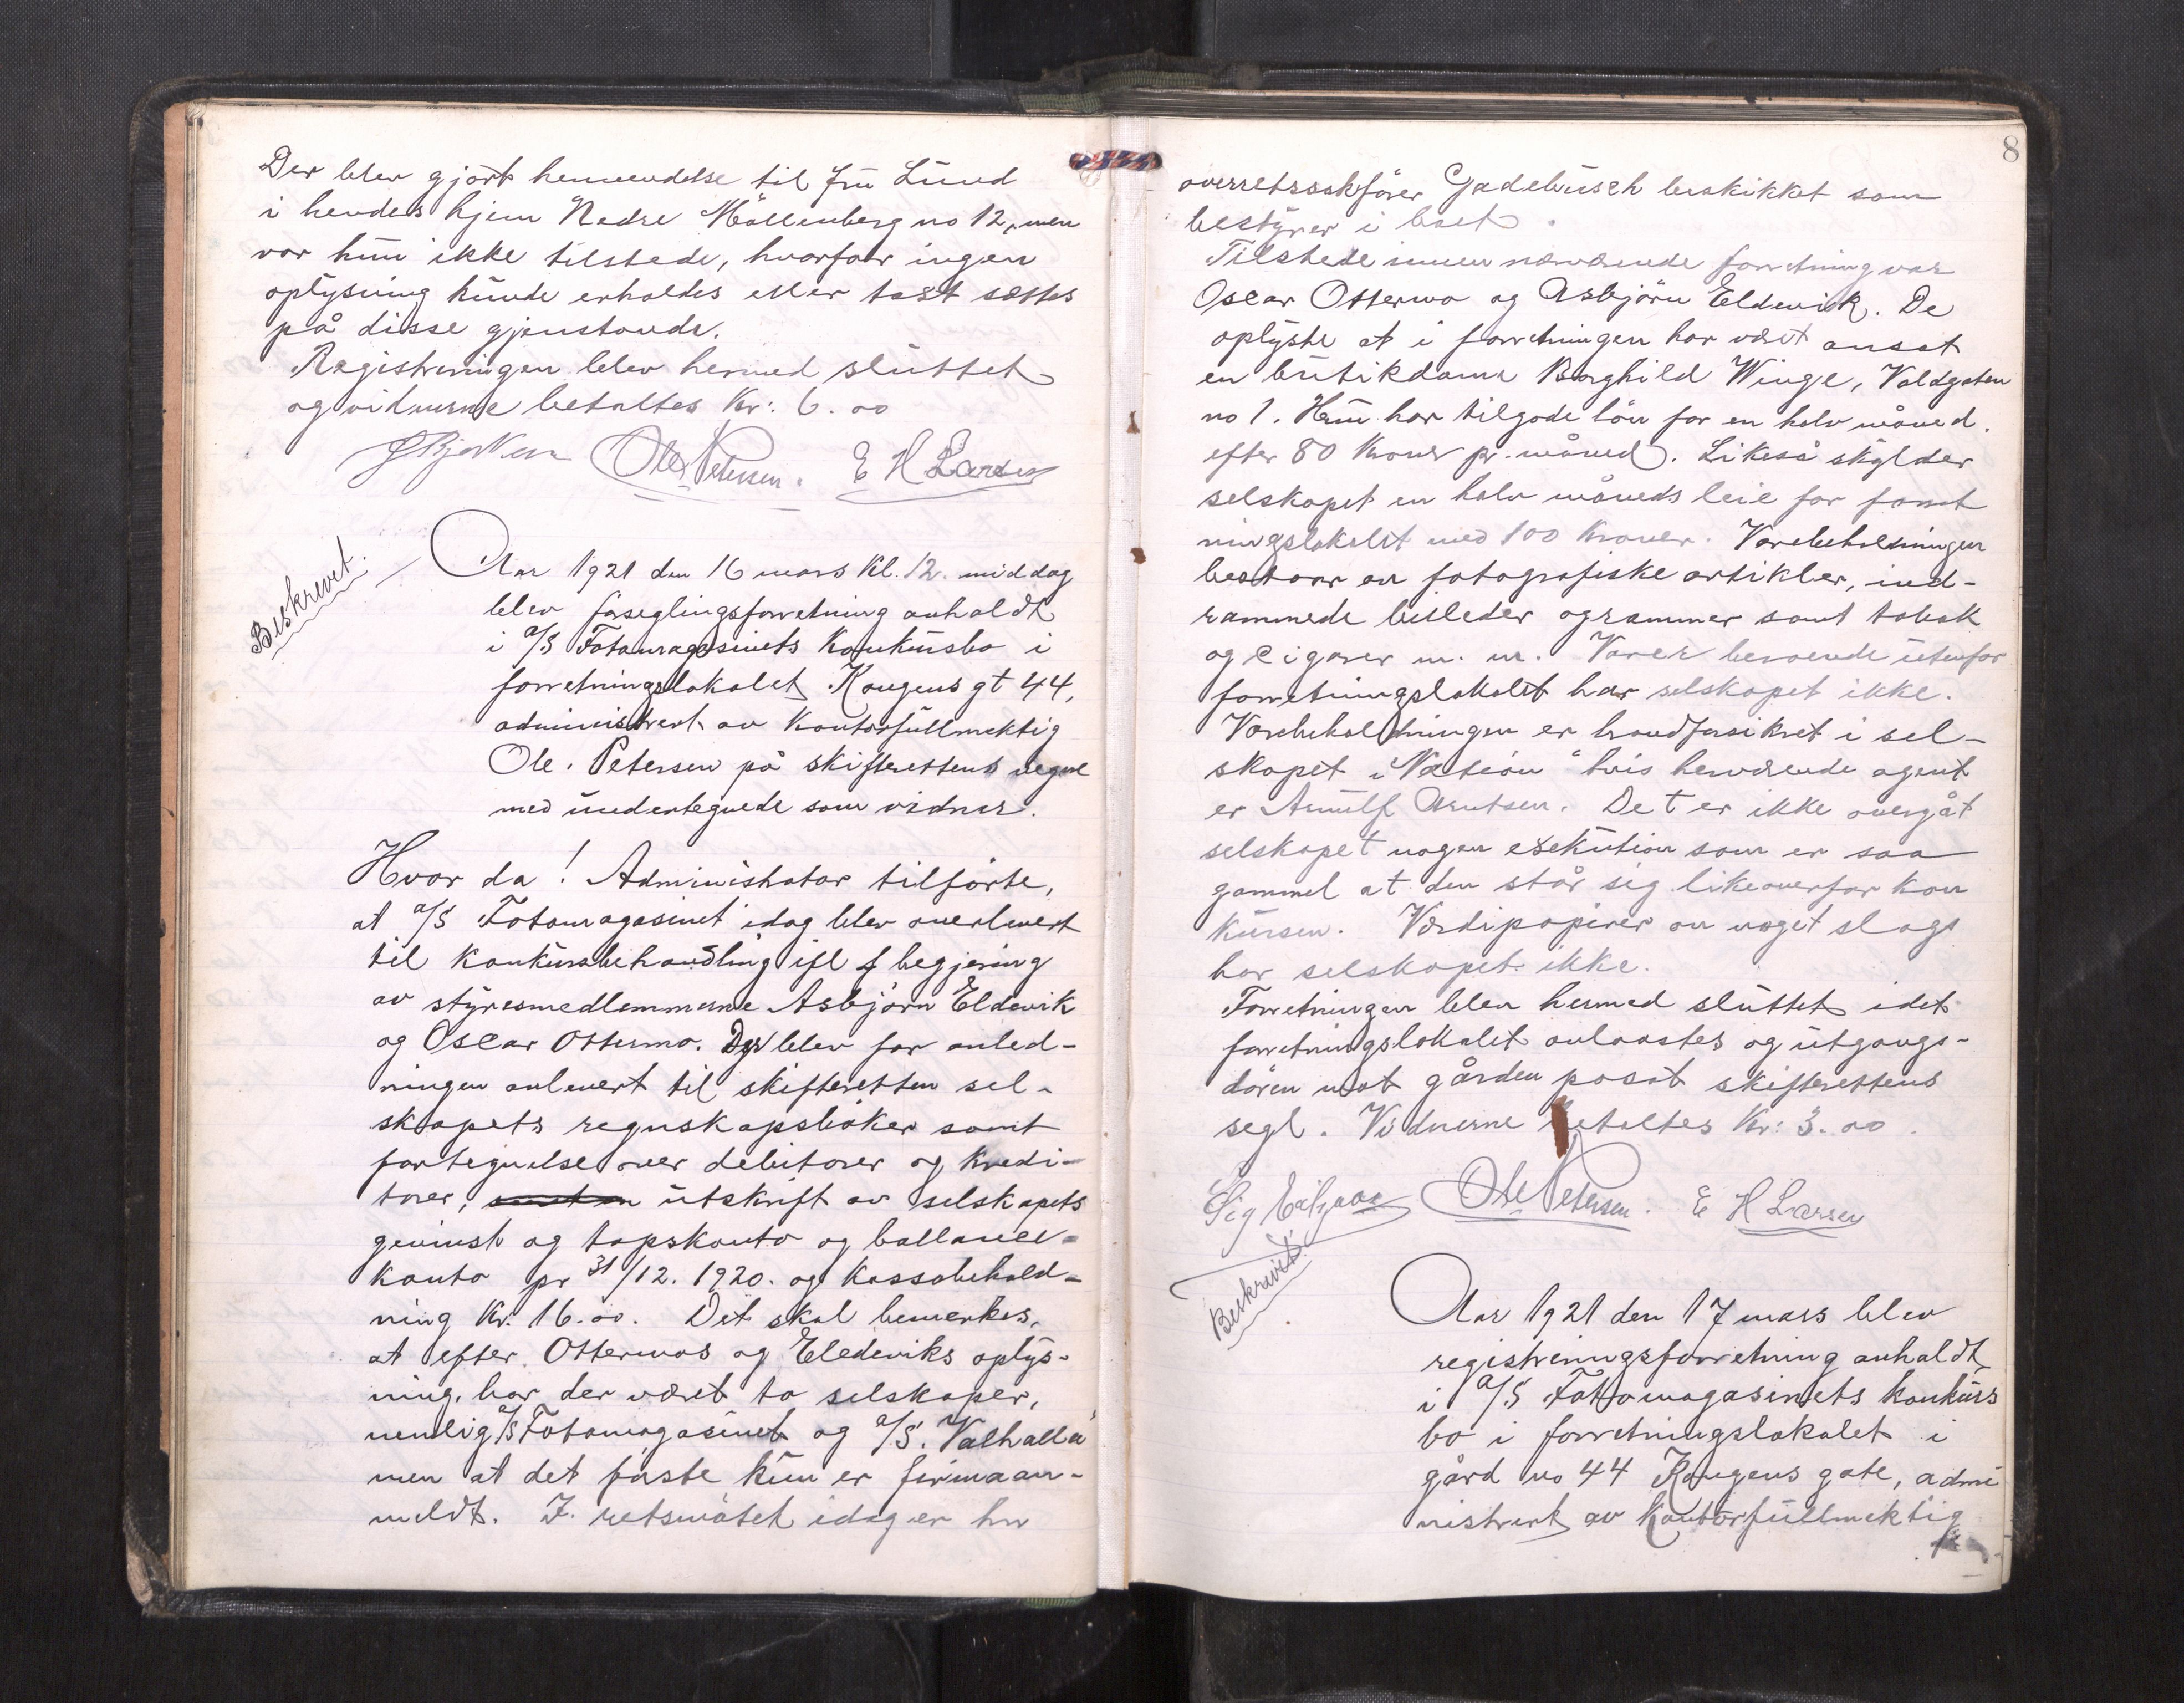 Der blev gjört henvendelse til fru Lund
i hendes hjem Nedre Möllenberg no 12, men
var hun ikke tilstede, hvorfor ingen
oplysning kunde erholdes eller takst sættes
på disse gjenstande.
Registreringen blev hermed sluttet
og vidnerne betaltes Kr: 6.00
Ole Petersen. E H Larsen
Beskrevet.
Aar 1921 den 16 mars Kl. 12 middag
blev forseglingsforretning avholdt
i A/S Fotomagasinets konkursbo i
forretningslokalet Kongens gt 44,
administrert av kontorfullmektig
Ole Petersen på skifterettens vegne
med undertegnede som vidner.
Hvor da! Administrator tilførte,
at A/S Fotomagasinet idag blev overlevert
til konkursbehandling ifl begjæring
av styresmedlemmerne Asbjörn Eldevik
og Oscar Ottermo. Der blev for anled-
ningen avlevert til skifteretten sel-
skapets regnskapsböker samt
fortegnelse over debitorer og kredi-
torer, utskrift av selskapets
gevinst og tapskonto og ballance-
konto pr 31/12. 1920. og kassabehold-
ning Kr. 16.00. Det skal bemerkes,
at efter Ottermos og Eledeviks oplys-
ning, har der været to selskaper,
nemlig A/S Fotomagasinet og A/S. Valhalla
men at det förste kun er firmaan-
meldt. I retsmötet idag er hr
8
overretssakförer Gadebusch beskikket som
bestyrer i boet.
Tilstede under nærværende forretning var
Oscar Ottermo og Asbjörn Eldevik. De
oplyste at i forretningen har været ansat
en butikdame Borghild Winge, Voldgaten
no 1. Hun har tilgode lön for en halv måned
efter 80 Kroner pr. måned. Likeså skylder
selskapet en halv måneds leie for forret
ningslokalet med 100 Kroner. Varebeholdningen
bestaar av fotografiske artikler, ind-
rammede billeder og rammer samt tobak
og cigarer m. m. Varer beroende utenfor
forretningslokalet har selskapet ikke.
Varebeholdningen er brandforsikret i sel-
skapet "Nation" hvis herværende agent
er Arnulf Arntsen. Det er ikke overgåt
selskapet nogen eksekution som er saa
gammel at den står sig likeoverfor kon
kursen. Værdipapirer av noget slags
har selskapet ikke.
Forretningen blev hermed sluttet idet
forretningslokalet avlaastes og utgangs-
dören mot gården påsat skifterettens
segl. Vidnerne betaltes Kr: 3.00.
Ole Petersen. E H Larsen
Beskrevet.
Aar 1921 den 17 mars blev
registreringsforretning avholdt
i A/S Fotomagasinets konkurs
bo i forretningslokalet i
gård no 44 Kongens gate, admi
nistrert av kontorfullmektig